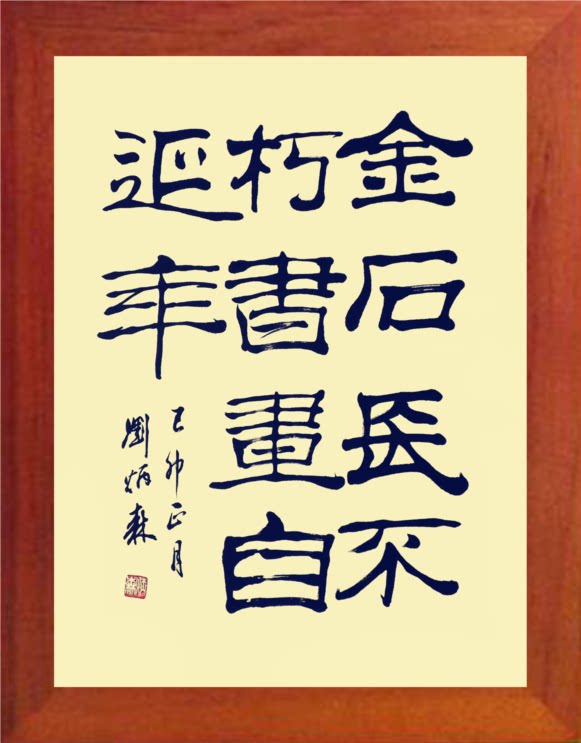 金石長不
朽書畫自
延年
己卯正月
劉炳森